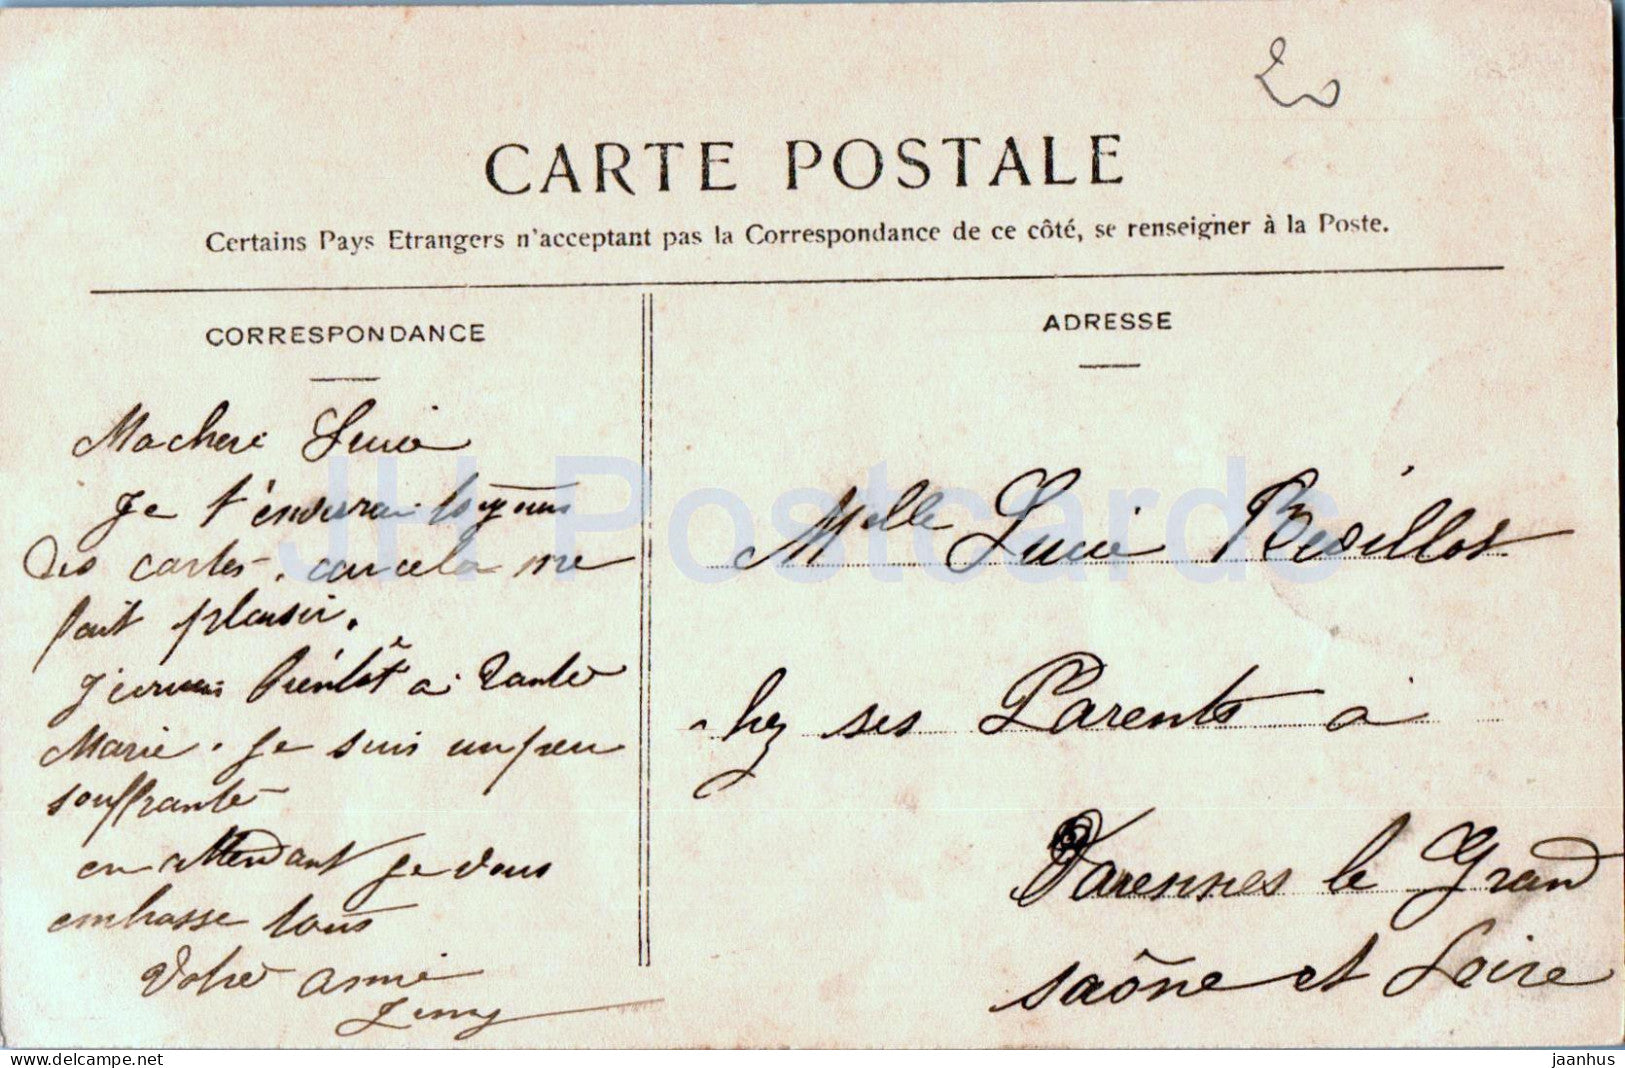 CARTE POSTALE
Certains Pays Etrangers n'acceptant pas la Correspondance de ce côté, se renseigner à la Poste.
CORRESPONDANCE
Ma chere Lucie
Je t'enverrai toujours
des cartes. car cela me
fait plaisir.
J'ecrirais bientôt a Tante
Marie. Je suis un peu
souffrante
en attendant je vous
embrasse tous
Votre amie
ADRESSE
Melle Lucie
chez ses Parents à
Varennes le Grand
saône et Loire
JH Postcards
www.delcampe.net
jaanhus